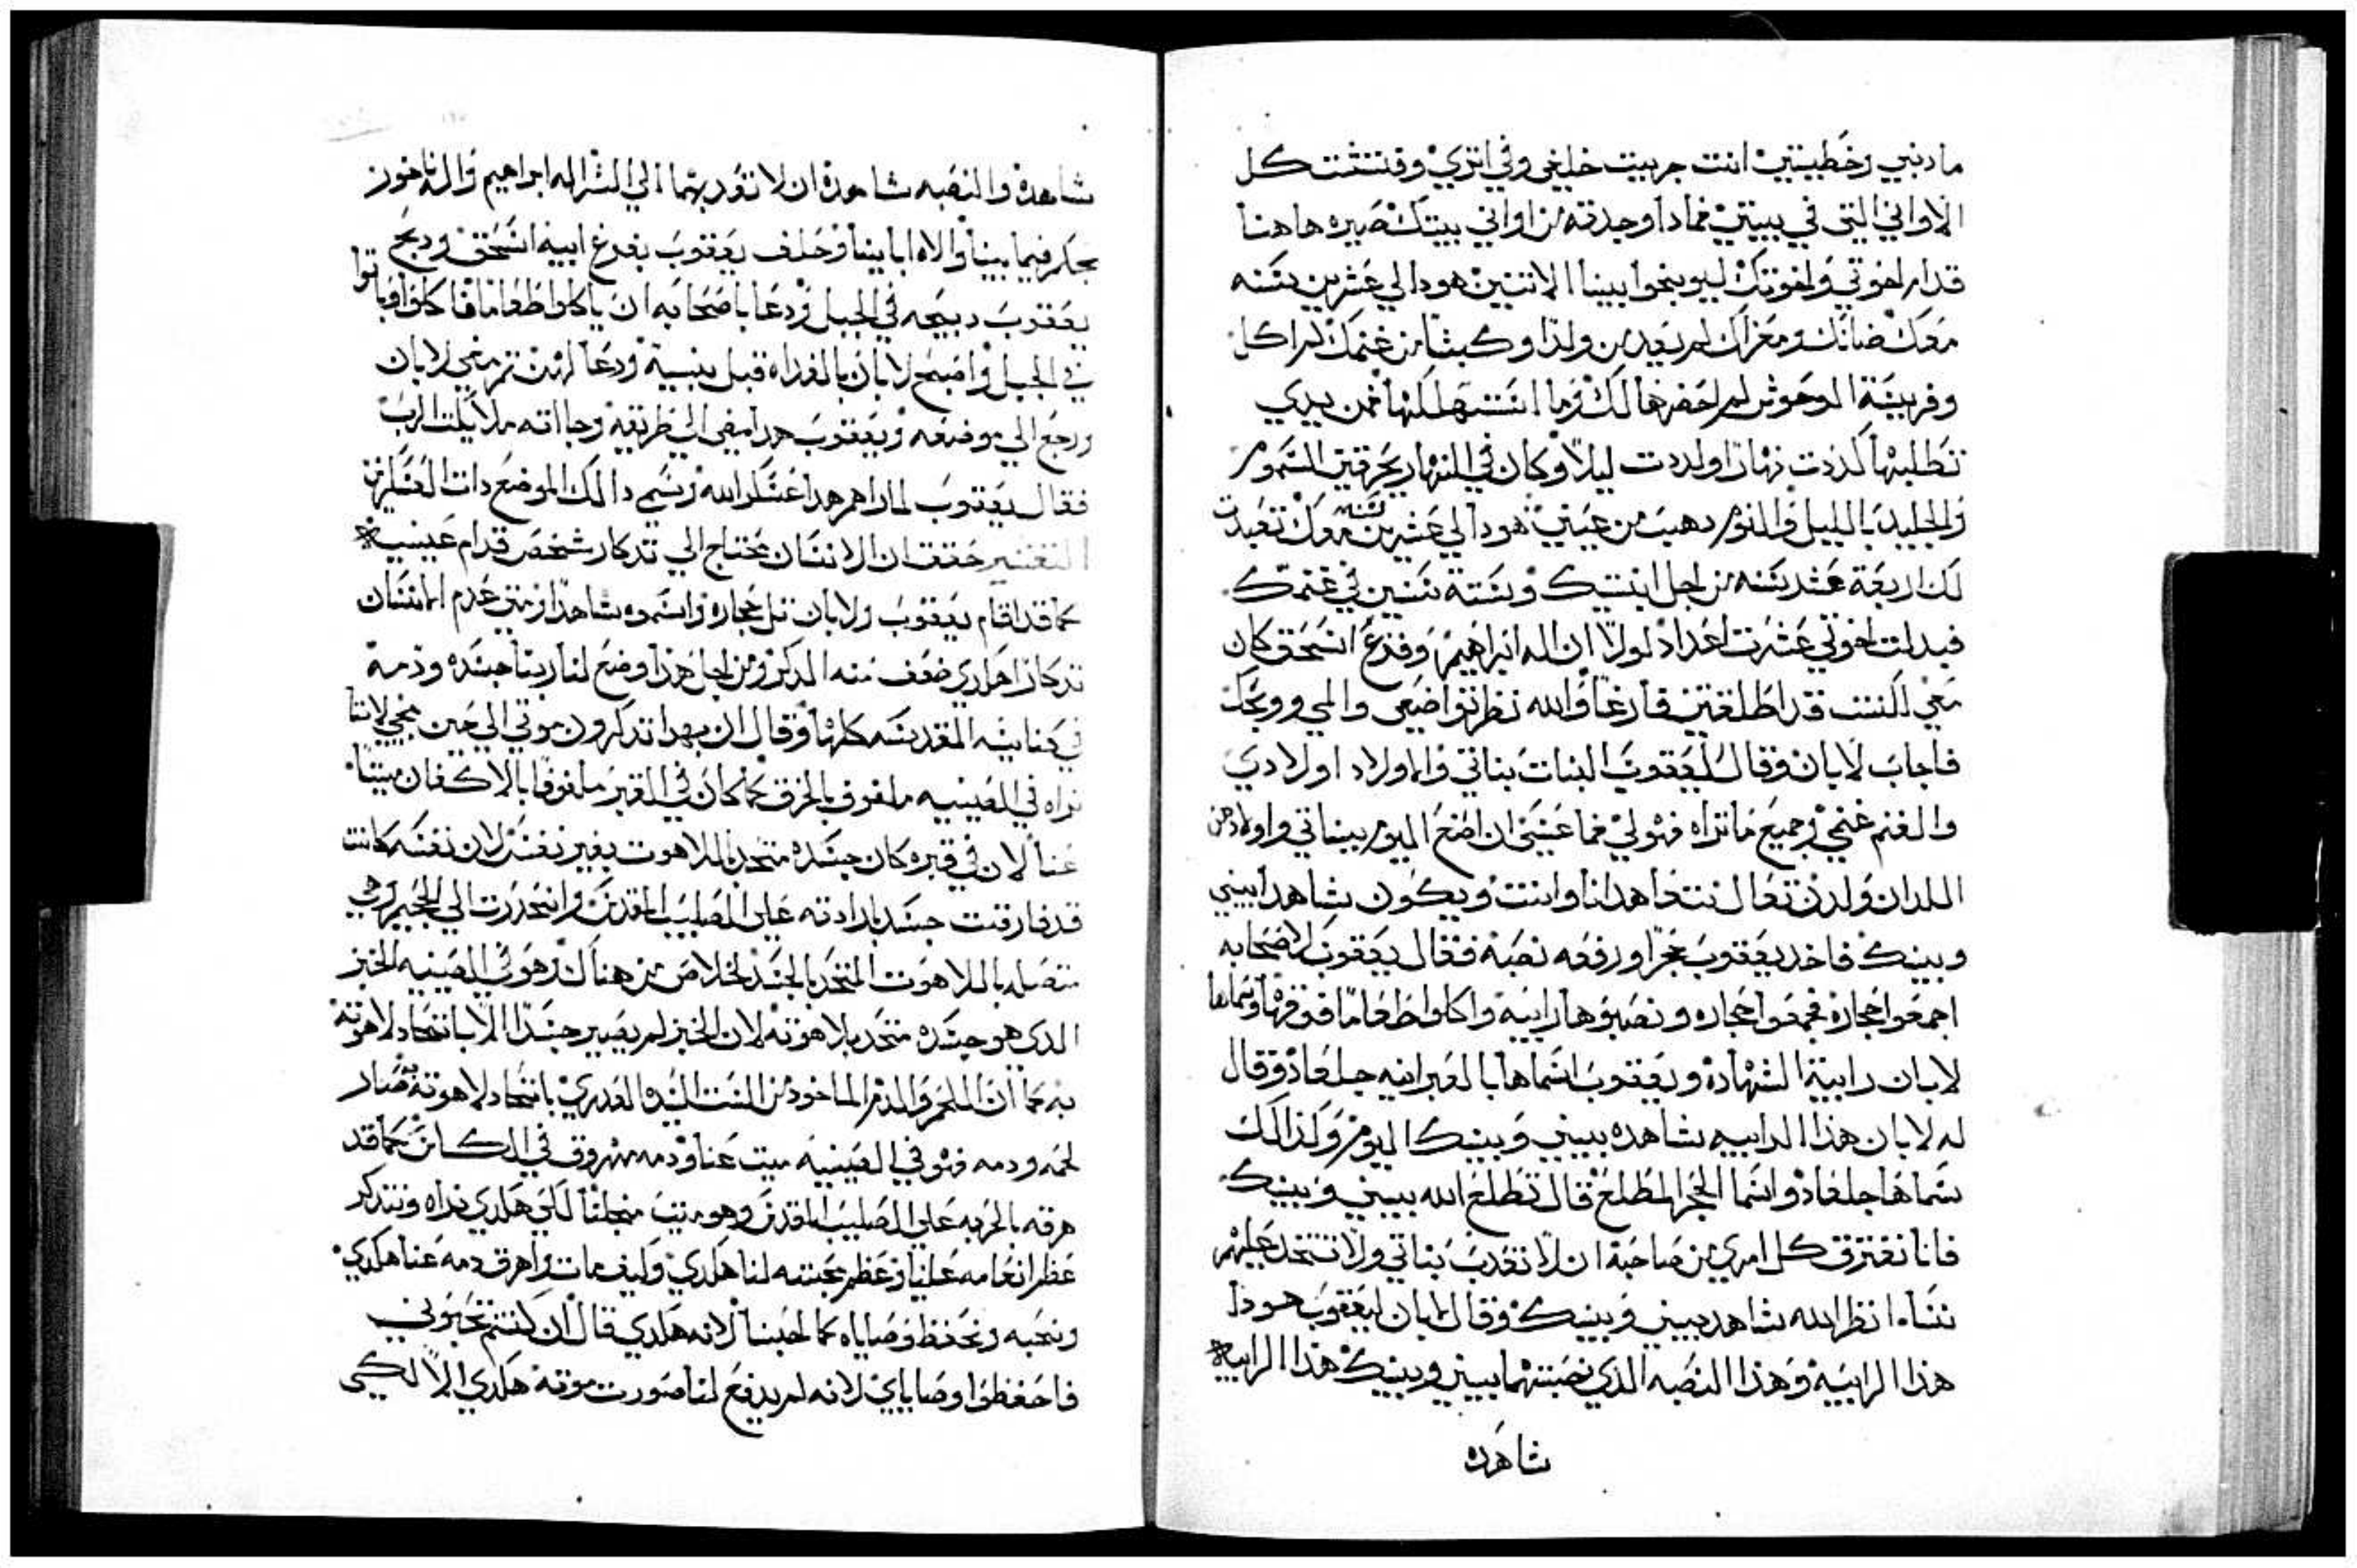 مادنبي وخطيتي انت جريت خليفي وفي اتري وفتشت كل
الاواني التي في بيتي فمادا وجدته من اواني بيتك صيره هاهنا
قدام اخوتي واخوتك ليوبخوا بيننا الاتنين هودا لي عشرين سنه
معك ضانك ومعزاك لم يعدمن ولدا وكبشا من غنمك لم اكل
وفريسة الوحوش لم احضرها لك وما استهلك لها فمن يدي
تطلبها كددت نهارا وكددت ليلا وكان في النهار يحرقني السموم
والجليد بالليل والنوم دهب من عيني هودا لي عشرين سنه معك تعبدت
لك اربعة عشر سنه من اجل ابنتيك وستة سنين في غنمك
فبدلت اخوتي عشرت اعداد لولا ان اله ابراهيم وفزع اسحق كان
معي الست قد اطلقتني فارغا والله نظر تواضعي والمي ووبخك
فاجاب لابان وقال ليعقوب البنات بناتي والاولاد اولادي
والغنم غنمي وجميع ماتراه فهو لي فما عسى ان اصنع اليوم ببناتي واولادهن
الدان ولدن تعال نتعاهد انا وانت ويكون شاهدا بيني
وبينك فاخد يعقوب حجرا ورفعه نصبة فقال يعقوب لاصحابه
اجمعوا حجارة فجمعوا حجاره ونصبوها رابية واكلوا طعاما فوقها وسماها
لابان رابية الشهادة ويعقوب اسماها بالعبرانيه جلعاد وقال
له لابان هذا الرابيه شاهده بيني وبينك اليوم وكذالك
سماها جلعاد واسما الحجر المطلع قال تطلع الله بيني وبينك
فانا نفترق كل امري من صاحبة ان لا تعدب بناتي ولا تتخد عليهم
نساء انظر الله شاهد بيني وبينك وقال لابان ليعقوب هودا
هذا الرابية وهذا النصبه الذي نصبتهما بيني وبينك هذا الرابية
شاهده
شاهدة والنصبه شاهدة ان لا تعد بهما الي الشر اله ابراهيم واله ناحور
يحكم فيما بيننا والاه ابايينا وحلف يعقوب بفزع ابيه اسحق ودبح
يعقوب دبيحه في الجبل ودعا باصحابه ان ياكلوا طعاما فاكلوا وباتوا
في الجبل واصبح لابان بالغداه قبل بنيه ودعا لهن تم مضي لابان
ورجع الي موضعه ويعقوب هدا مضى الي طريقه وجااته ملايكت الرب
فقال يعقوب لما راهم هدا عسكر الله وسمي دالك الموضع دات العسكرين
التفسير حقق ان الانسان محتاج الي تدكار شخص قدام عينيه
كما قد اقام يعقوب ولابان تل حجاره واسموه شاهدا ومتى عدم الانسان
تدكارا هكدي ضعف منه الدكر ومن اجل هذا وضع لنا ربنا جسده ودمه
في كنايسه المقدسه كلها وقال ان بهدا تدكرون موتي الي حين مجي لاننا
نراه في الصينيه ملفوف بالخرق كما كان في القبر ملفوفا بالاكفان ميتا
عنا لان في قبره كان جسده متحد باللاهوت بغير نفس لان نفسه كانت
قد فارقت جسده بارادته علي الصليب المقدس وانحدرت الي الجحيم وهي
متصله باللاهوت المتحد بالجسد لخلاص من هناك وهو في الصينيه الخبز
الدي هو جسده متحد بلاهوته لان الخبز لم يصير جسدا الا باتحاد لاهوته
به كما ان اللحم والدم الماخود من الست السيده العدري باتحاد لاهوته به صار
لحمه ودمه فهو في الصينيه ميت عنا ودمه مهروق في الكاس كما قد
هرقه بالحربه علي الصليب المقدس وهو ميت من اجلنا لكي هكدي نراه ونتدكر
عظم انعامه علينا وعظم محبته لنا هكدي وكيف مات واهرق دمه عنا هكدي
ونحبه ونحفظ وصاياه كما احبنا لانه هكدي قال ان كنتم تحبوني
فاحفظوا وصاياي لانه لم يدفع لنا صورت موته هكدي الا لكي